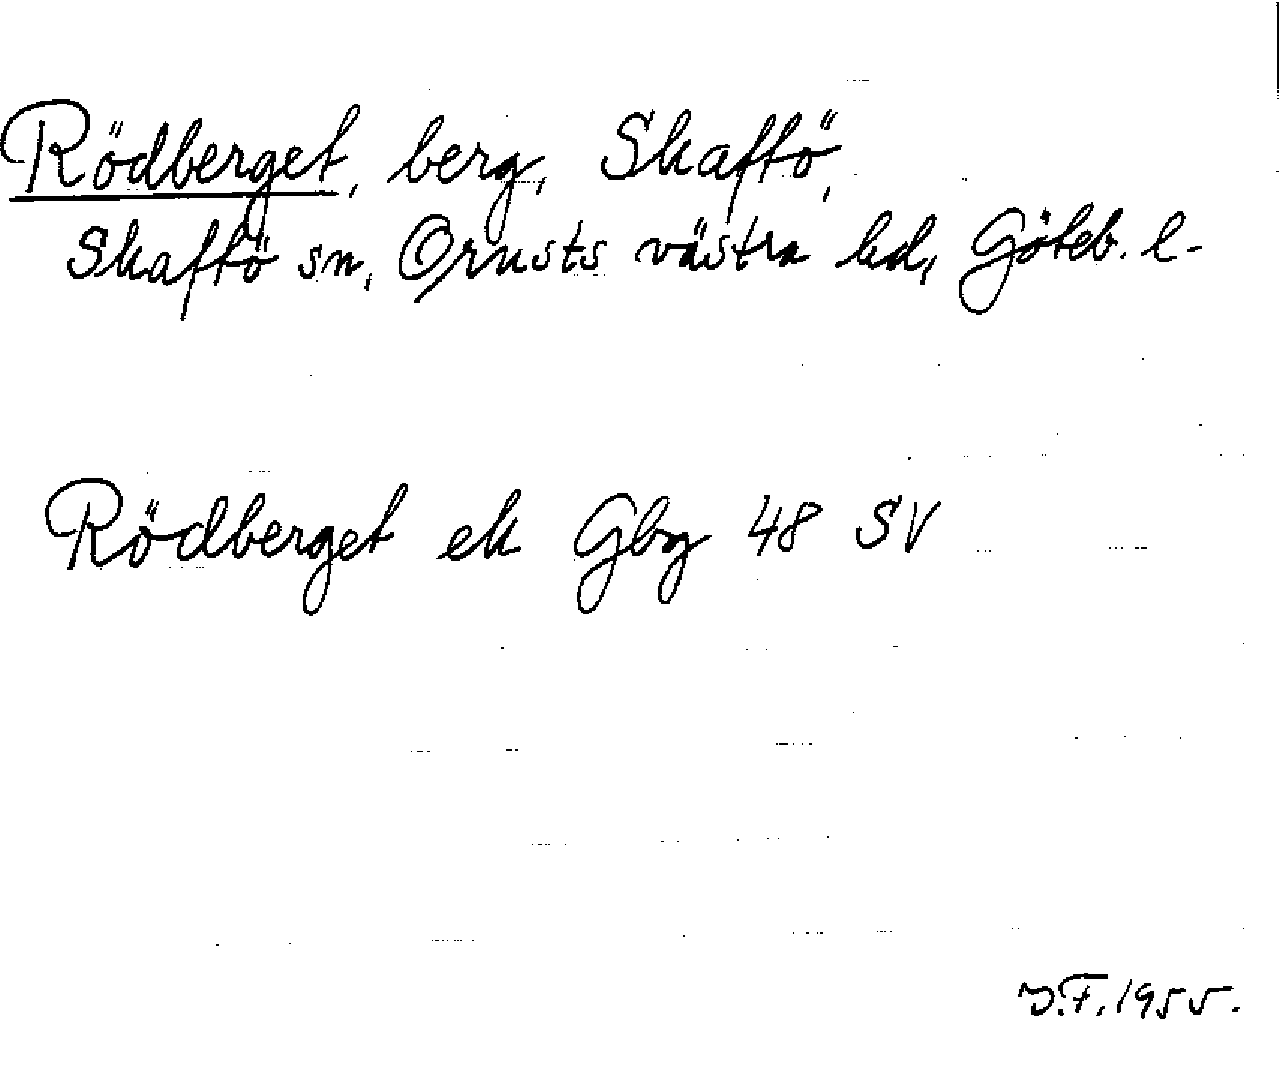 Rödberget, berg, Skaftö,
Skaftö sn, Orusts västra hd, Göteb. l-
Rödberget ek Gbg 48 SV
J.F. 1955.